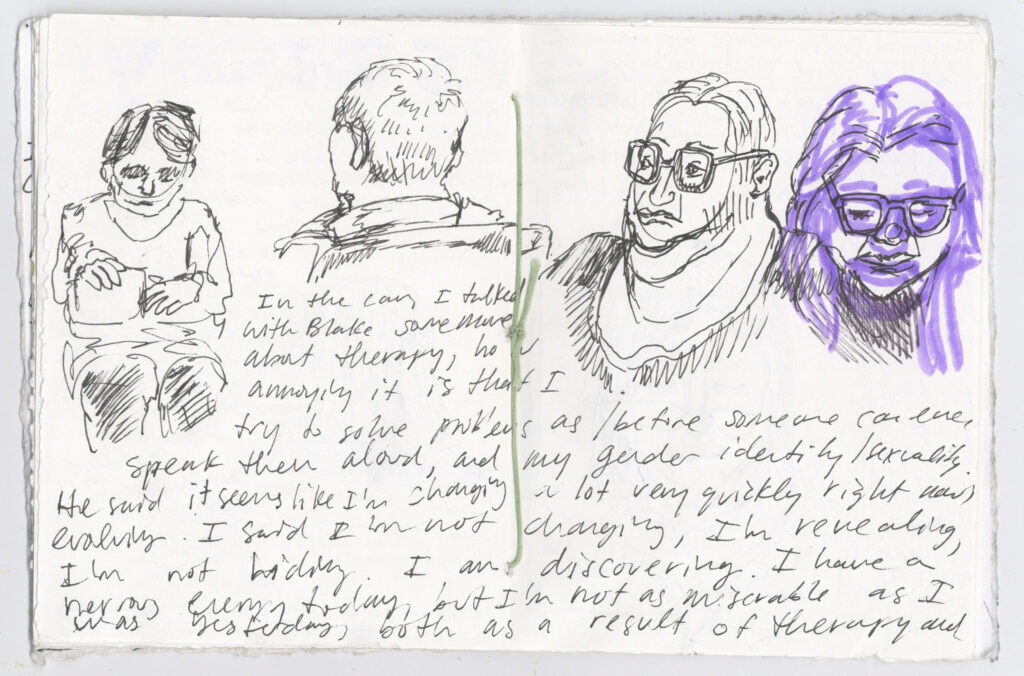 In the car, I talked
with Blake some more
about therapy, how
annoying it is that I
try to solve problems as/before someone can even
speak them aloud, and my gender identity/sexuality.
He said it seems like I'm changing a lot very quickly right now,
evolving. I said I'm not changing, I'm revealing,
I'm not hiding. I am discovering. I have a
nervous energy today, but I'm not as miserable as I
was yesterday, both as a result of therapy and